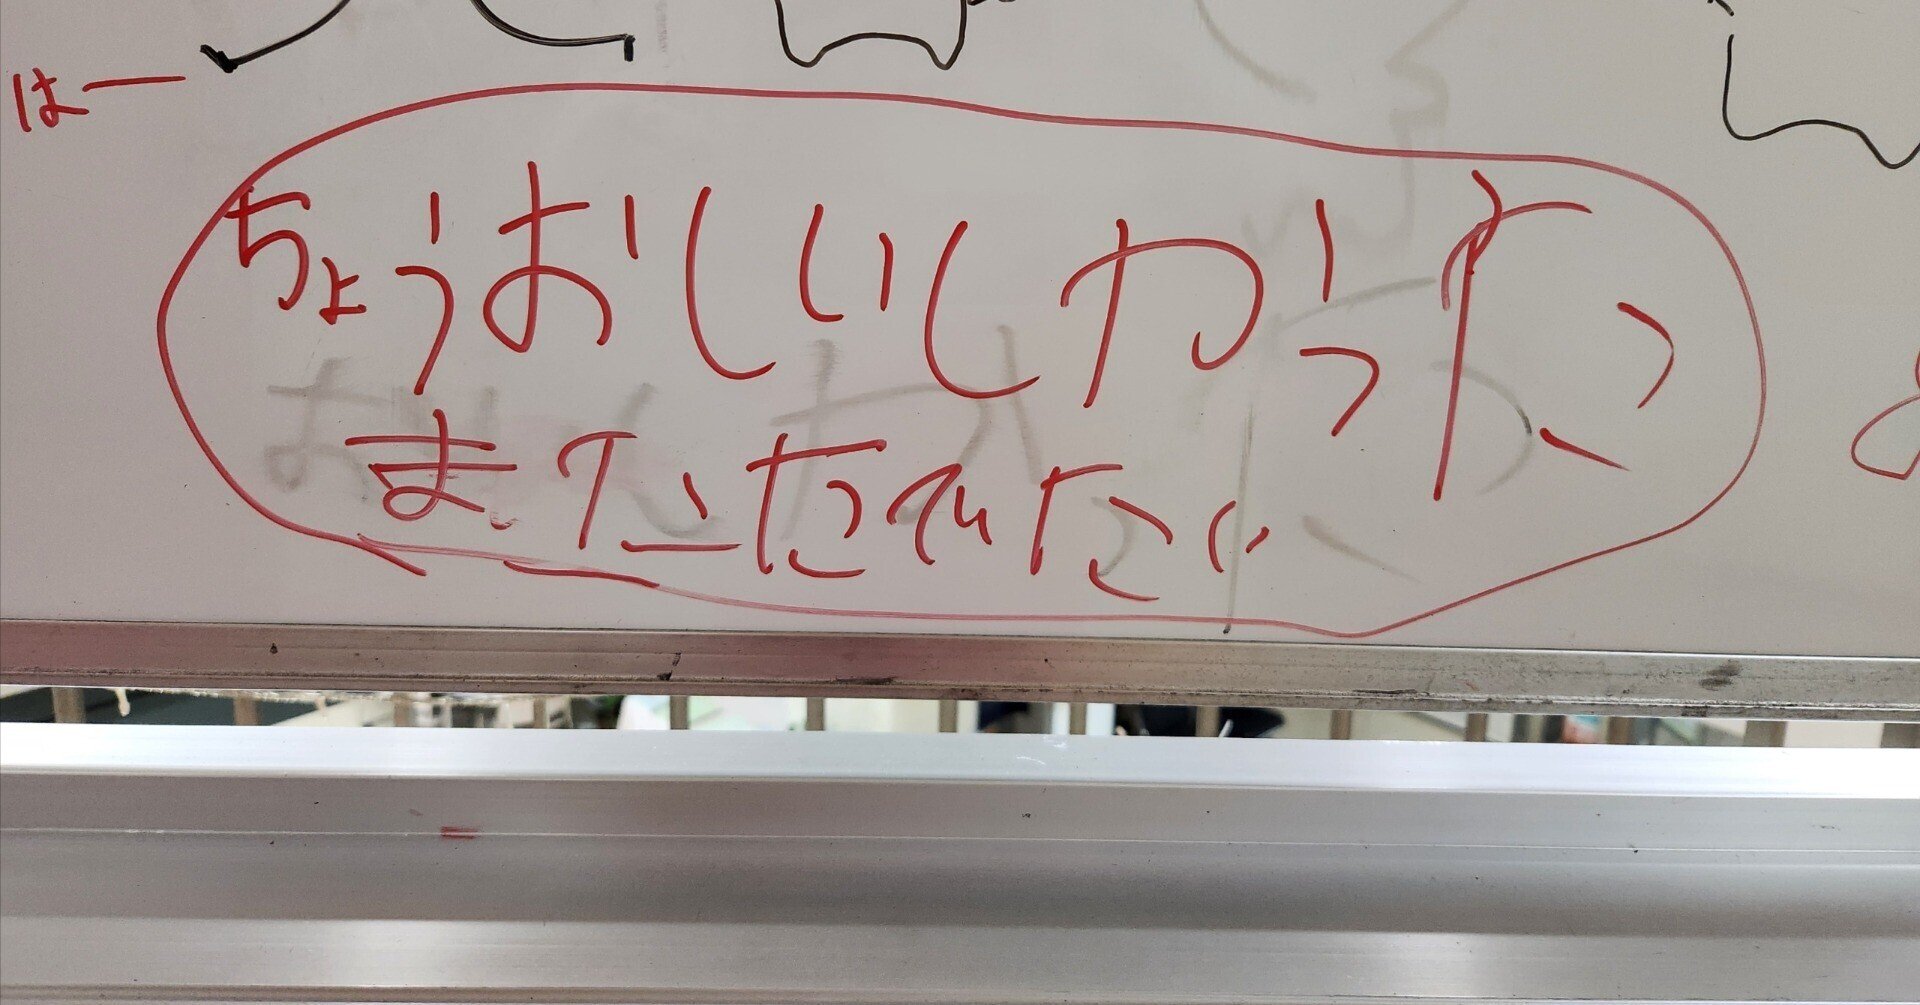 はー
ちょうおしいしかった
またたべたい